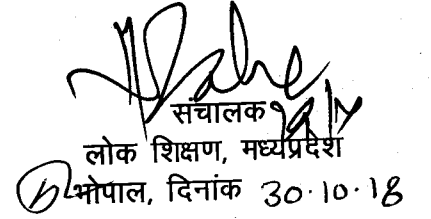 संचालक
लोक शिक्षण, मध्यप्रदेश
भोपाल, दिनांक 30.10.18